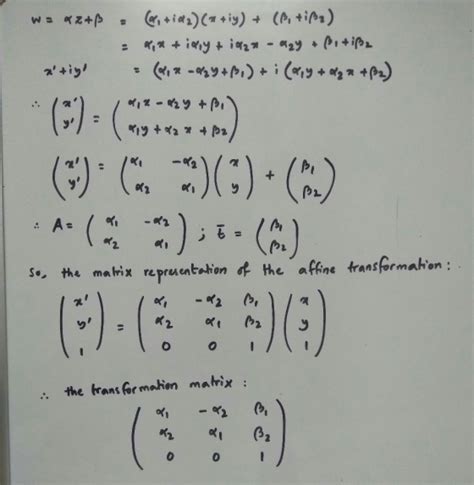 w = αz+β = (α₁+iα₂)(x+iy) + (β₁+iβ₂)
= α₁x + iα₁y + iα₂x - α₂y + β₁+iβ₂
x'+iy' = (α₁x - α₂y+β₁) + i(α₁y+α₂x+β₂)
∴ (x' y') = (α₁x - α₂y + β₁
α₁y + α₂x + β₂)
(x' y') = (α₁ -α₂
α₂ α₁) (x y) + (β₁ β₂)
∴ A = (α₁ -α₂
α₂ α₁) ; b̄ = (β₁ β₂)
So, the matrix representation of the affine transformation :
(x' y' 1) = (α₁ -α₂ β₁
α₂ α₁ β₂
0 0 1) (x y 1)
∴ the transformation matrix :
(α₁ -α₂ β₁
α₂ α₁ β₂
0 0 1)